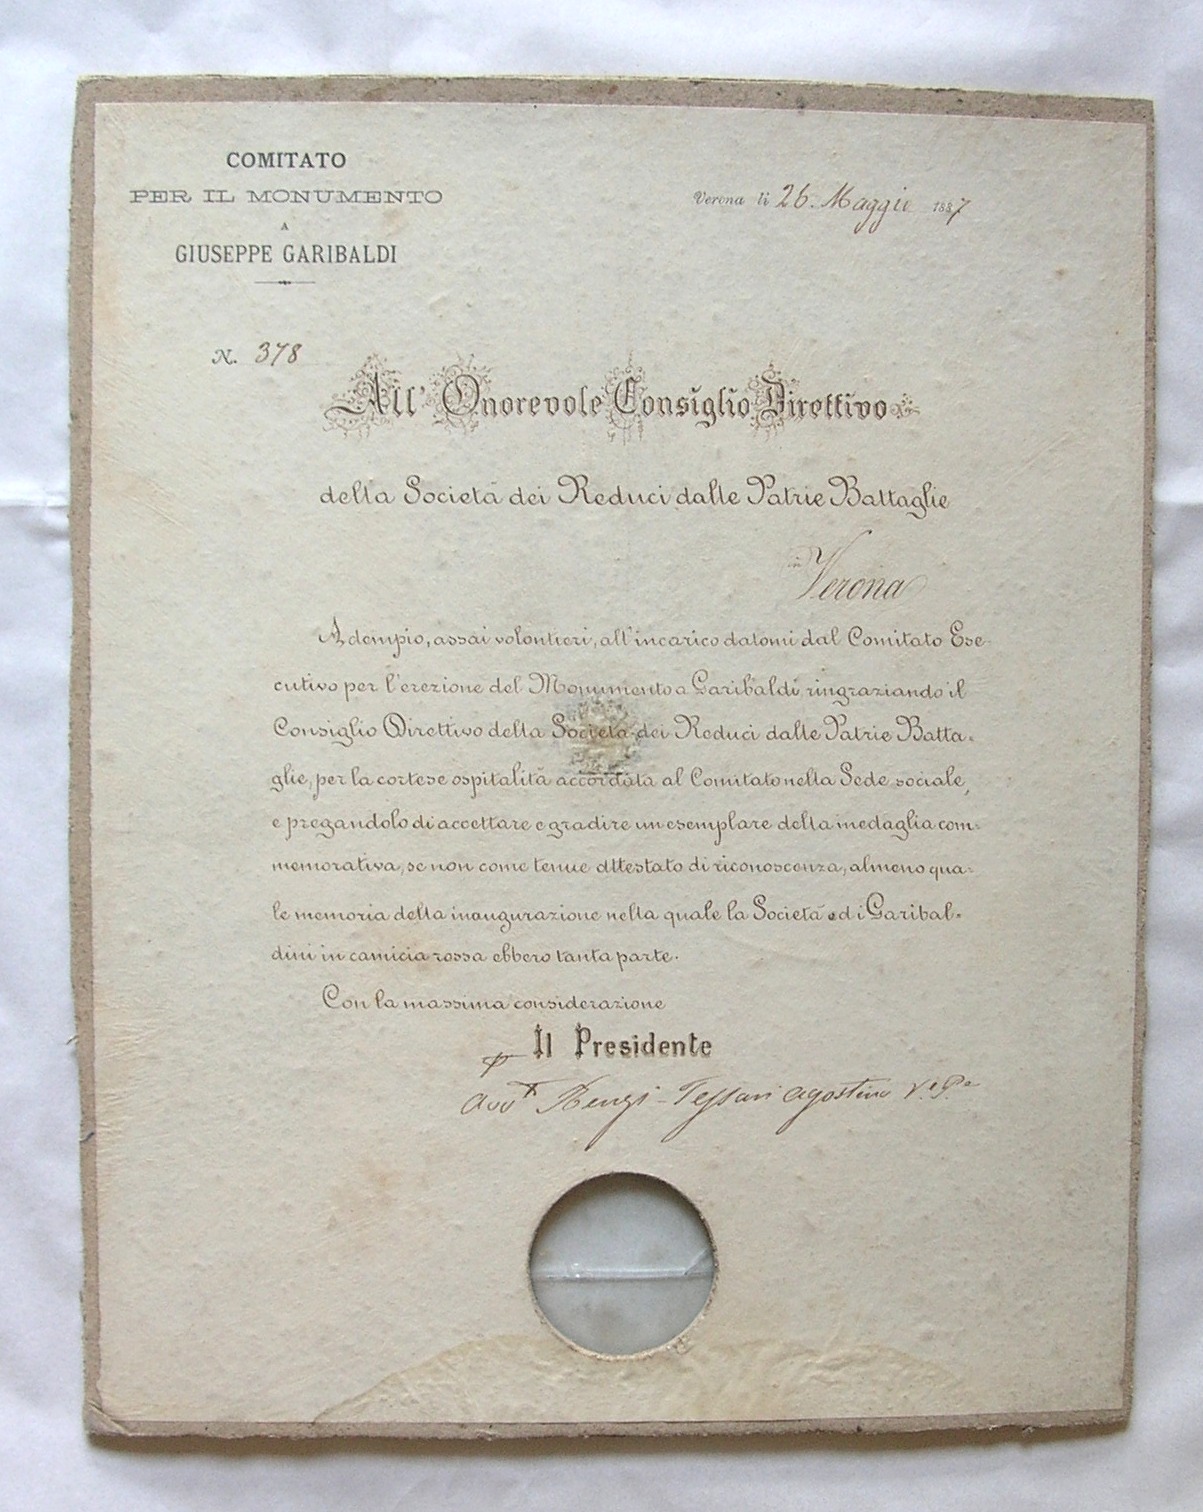 COMITATO
PER IL MONUMENTO
A
GIUSEPPE GARIBALDI
Verona li 26. Maggio 1887
N. 378
All' Onorevole Consiglio Direttivo
della Società dei Reduci dalle Patrie Battaglie
in Verona
Adempio, assai volontieri, all'incarico datomi dal Comitato Ese-
cutivo per l'erezione del Monumento a Garibaldi, ringraziando il
Consiglio Direttivo della Società dei Reduci dalle Patrie Batta-
glie, per la cortese ospitalità accordata al Comitato nella Sede sociale,
e pregandolo di accettare e gradire un esemplare della medaglia com-
memorativa, se non come tenue attestato di riconoscenza, almeno qua-
le memoria della inaugurazione nella quale la Società ed i Garibal-
dini in camicia rossa ebbero tanta parte.
Con la massima considerazione
Il Presidente
Avv Renzi-Tessari Agostino V.e P.e